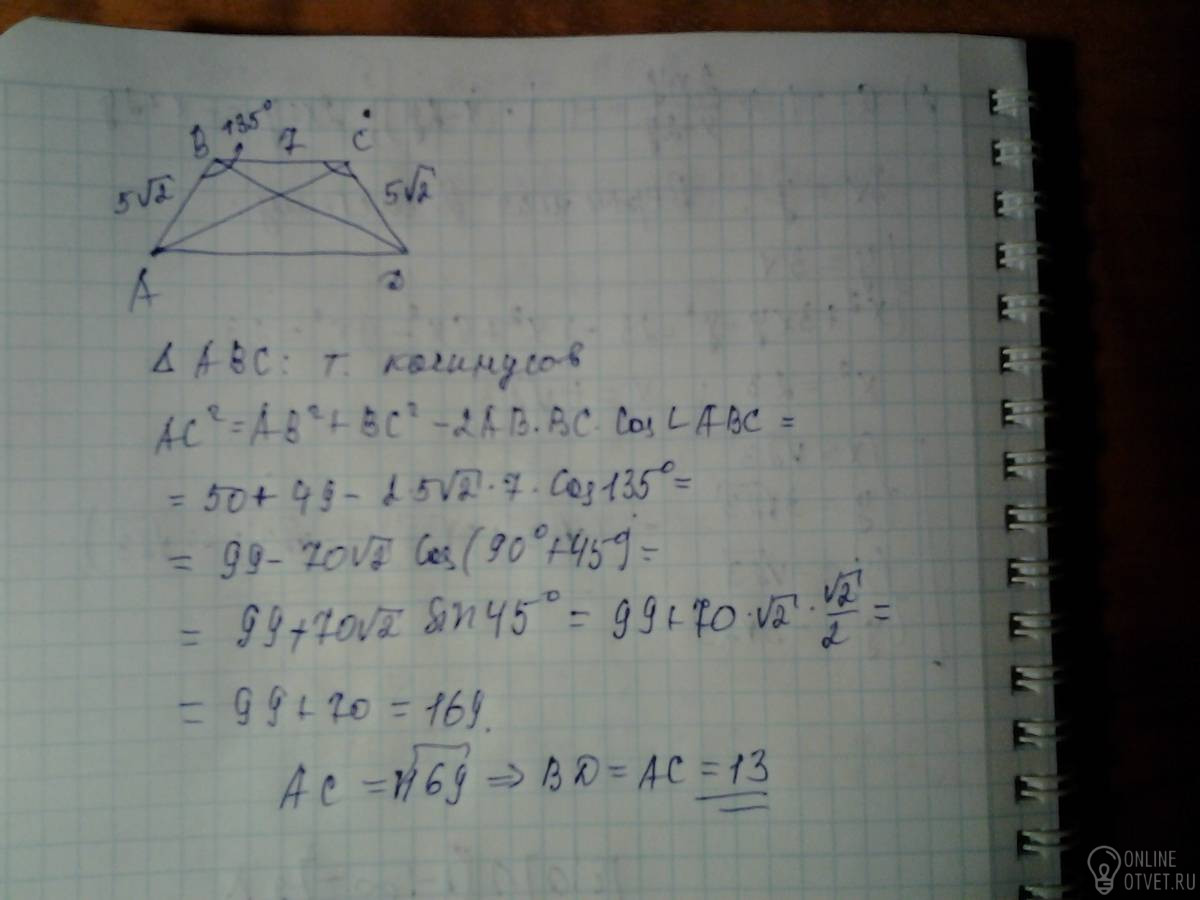 B 135° 7 C
5√2 5√2
A D
Δ ABC: т. косинусов
AC² = AB² + BC² - 2AB·BC·Cos∠ABC =
= 50 + 49 - 2 5√2·7·Cos135° =
= 99 - 70√2 Cos(90° + 45°) =
= 99 + 70√2 Sin45° = 99 + 70·√2·√2/2 =
= 99 + 70 = 169.
AC = √169 ⇒ BD = AC = 13
ONLINE
OTVET.RU